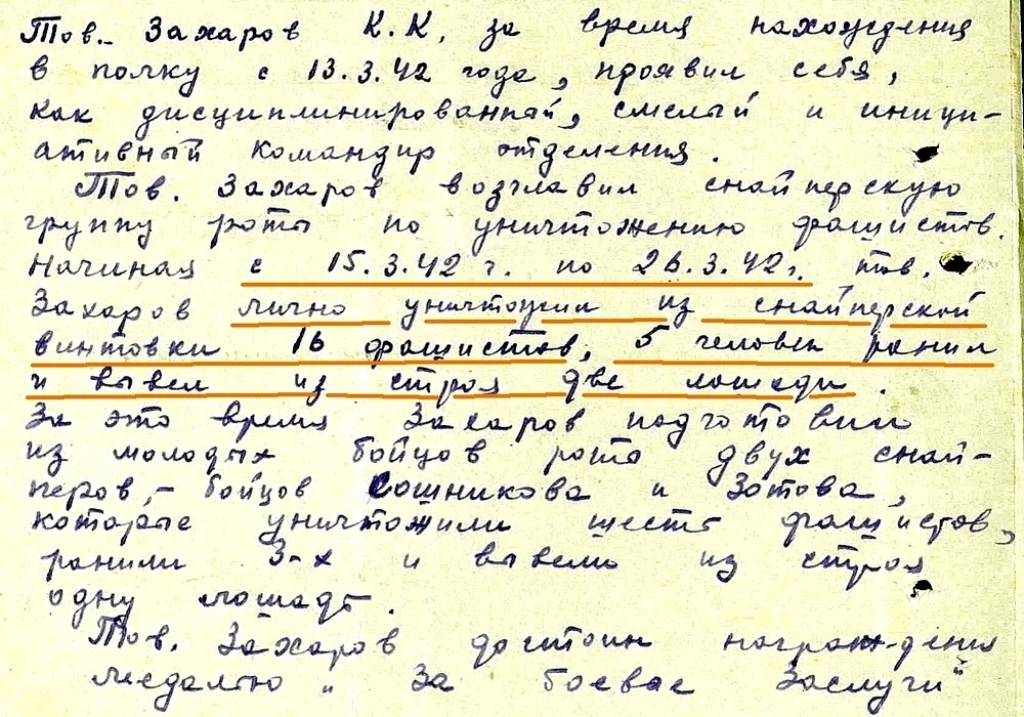 Тов. Захаров К.К. за время нахождения
в полку с 13.3.42 года, проявил себя,
как дисциплинированный, смелый и иници-
ативный командир отделения.
Тов. Захаров возглавил снайперскую
группу роты по уничтожению фашистов.
Начиная с 15.3.42 г. по 26.3.42 г. тов.
Захаров лично уничтожил из снайперской
винтовки 16 фашистов, 5 человек ранил
и вывел из строя две лошади.
За это время Захаров подготовил
из молодых бойцов роты двух снай-
перов, - бойцов Сошникова и Зотова,
которые уничтожили шесть фашистов,
ранили 3-х и вывели из строя
одну лошадь.
Тов. Захаров достоин награждения
медалью „За боевые заслуги"